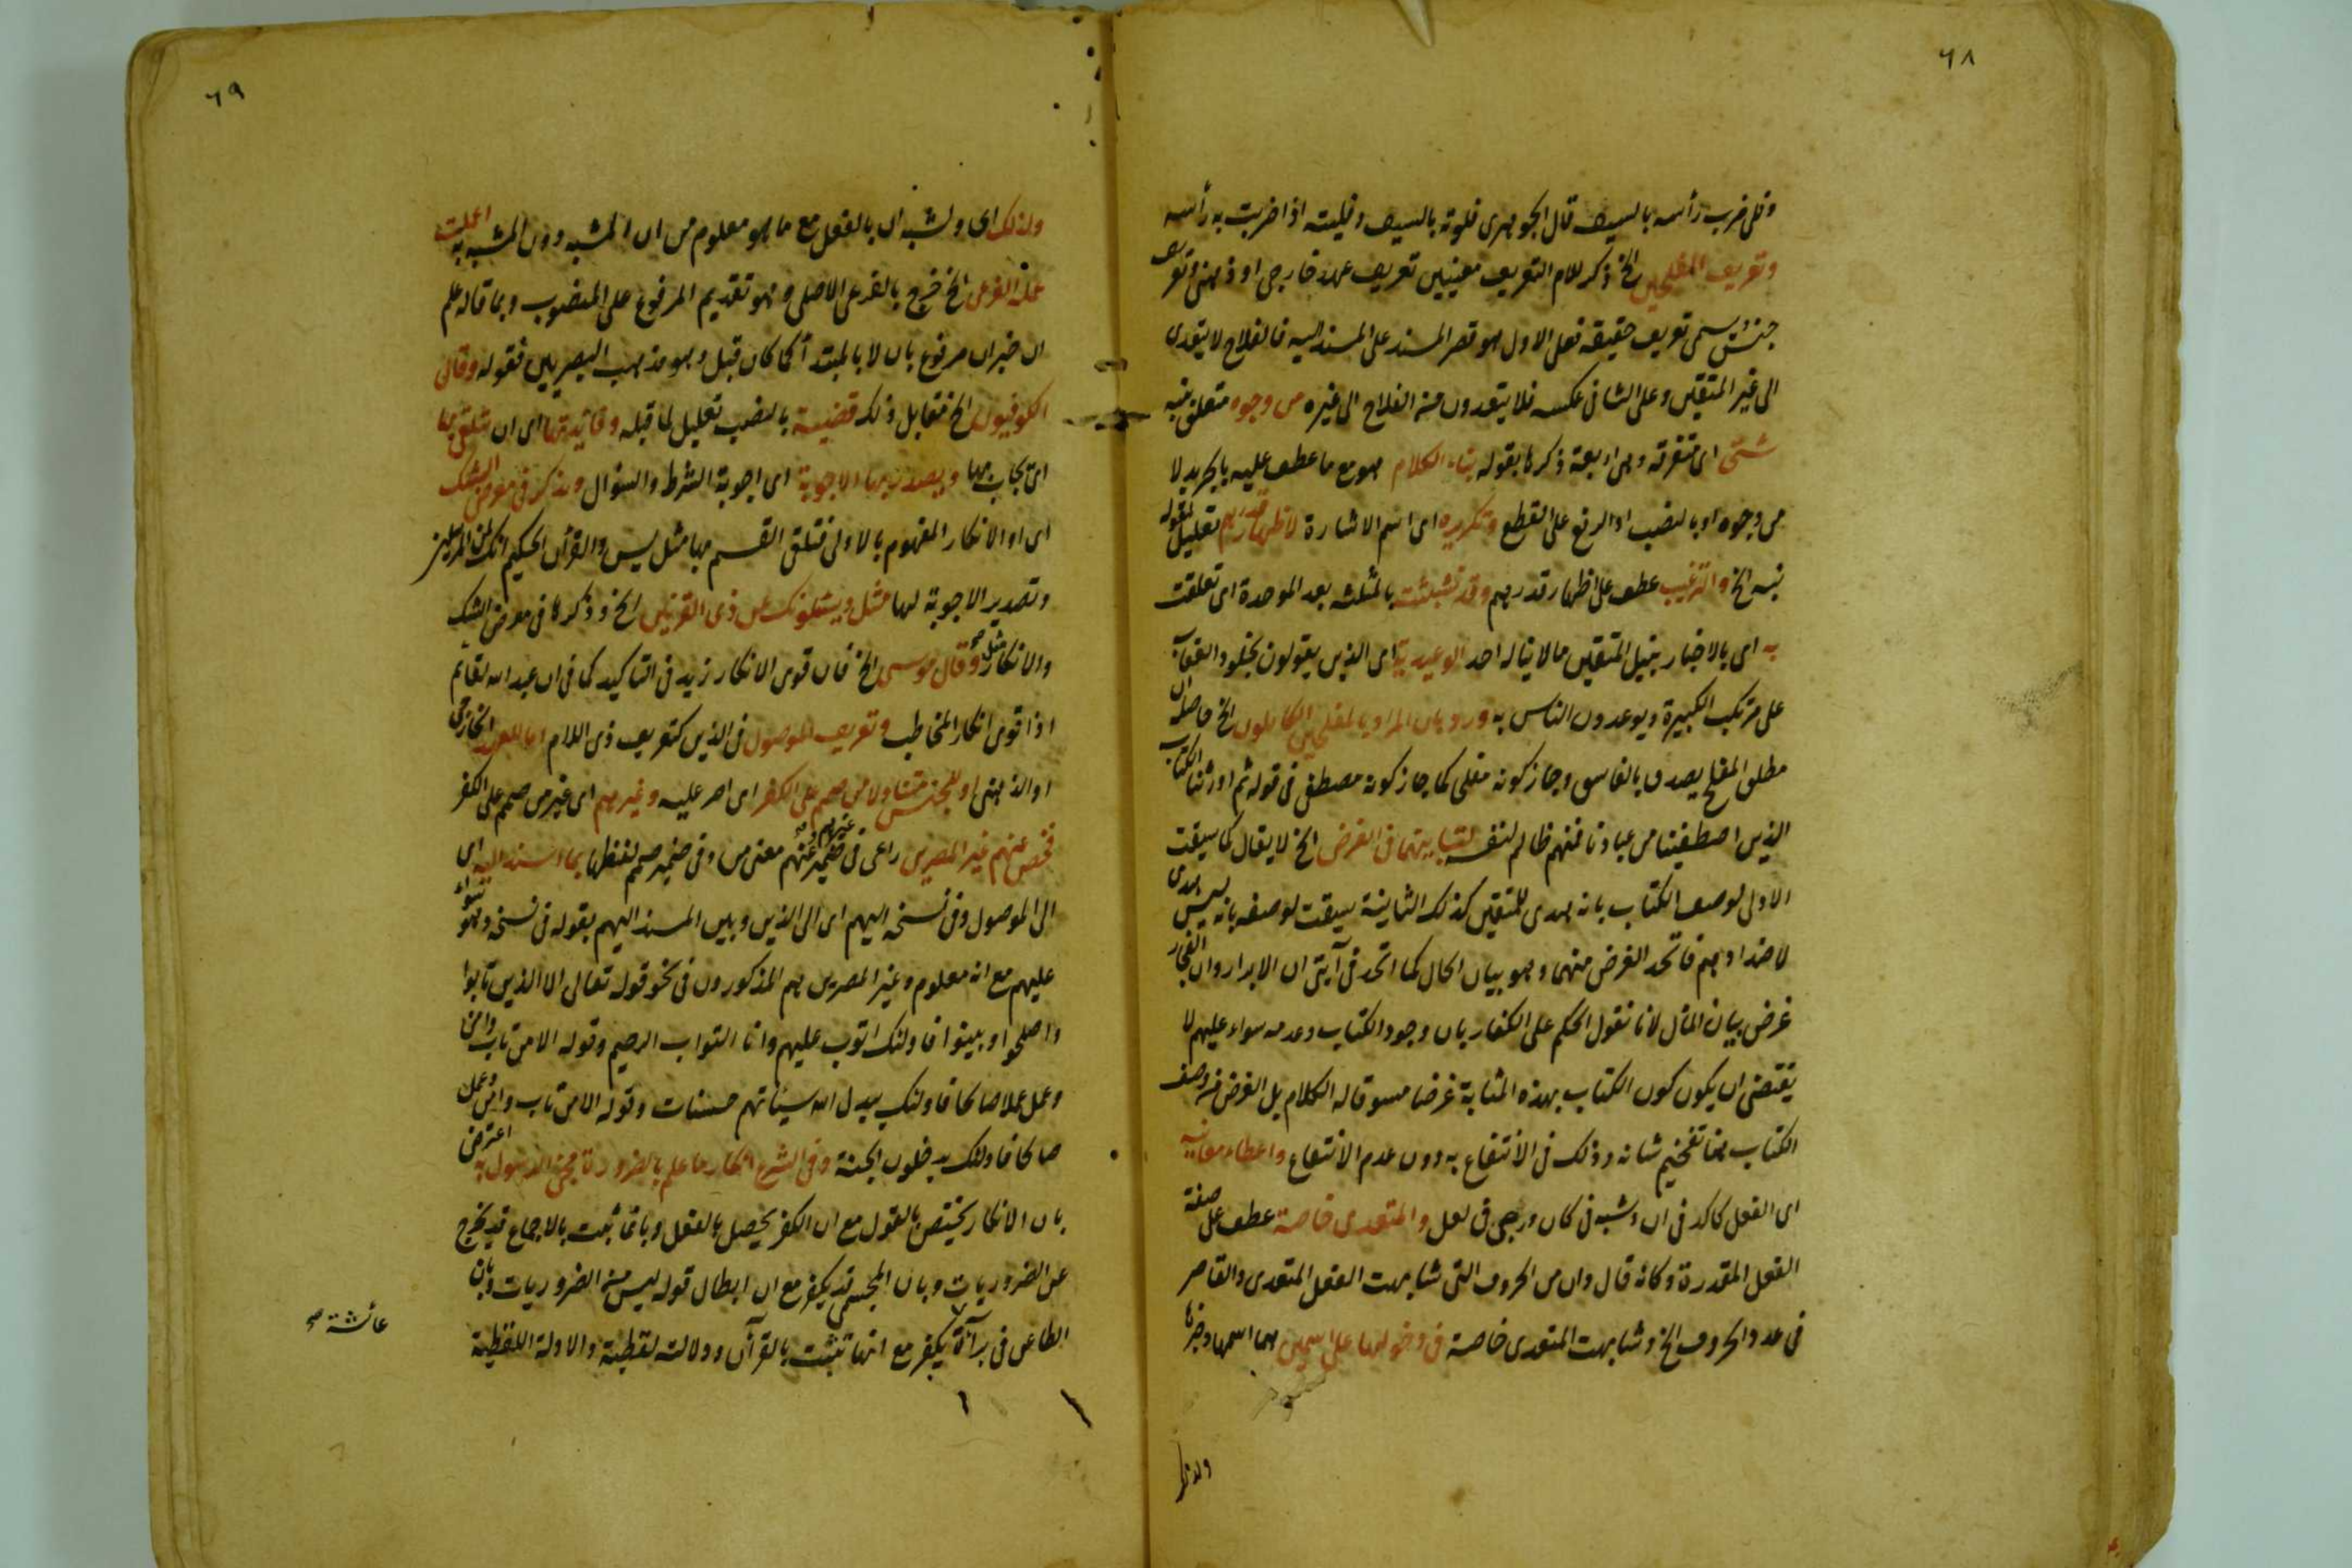 ٦٨
وفلى ضرب رأسه بالسيف قال الجوهرى فلوته بالسيف وفليته اذا ضربت به رأسه
وتعريف المفلحين الخ ذكر للام التعريف معنيين تعريف عهد خارجى او ذهنى وتعريف
جنس يسمى تعريف حقيقة فعلى الاول هو قصر المسند على المسند اليه فالفلاح لا يتعدى
الى غير المتقين وعلى الثانى عكسه فلا يتعدون منه الفلاح الى غيره من وجوه متعلق بنبه
شتى اى متفرقة وهى اربعة ذكرها بقوله بناء الكلام هو مع ما عطف عليه بالجر بدلا
من وجوه او بالنصب او الرفع على القطع وتكريره اى اسم الاشارة لاظهار قدرهم تعليل لقوله
نبه الخ والترغيب عطف على اظهار قدرهم وقد تشبثت بالمثلثة بعد الموحدة اى تعلقت
به اى بالاخبار بنيل المتقين مالا يناله احد الوعيدية اى الذين يقولون بخلود العقاب
على مرتكب الكبيرة ويوعدون الناس به ورد بان المراد بالمفلحين الكاملون الخ حاصله ان
مطلق المفلح يصدق بالفاسق وجاز كونه مفلحا كما جاز كونه مصطفى فى قوله ثم اورثنا الكتاب
الذين اصطفينا من عبادنا فمنهم ظالم لنفسه لتباينهما فى الغرض الخ لا يقال كما سيقت
الاولى لوصف الكتاب بانه هدى للمتقين كذلك الثانية سيقت لوصفه بانه ليس هدى
لاضدادهم فاتحد الغرض منهما وهو بيان الحال كما اتحد فى آيتى ان الابرار وان الفجار
غرض بيان المآل لانا نقول الحكم على الكفار بان وجود الكتاب وعدمه سواء عليهم لا
يقتضى ان يكون كون الكتاب بهذه المثابة غرضا مسوقا له الكلام بل الغرض فى وصف
الكتاب بها تفخيم شانه وذلك فى الانتفاع به دون عدم الانتفاع واعطاء معانيه
اى الفعل كاكد فى ان وشبه فى كان ورجى فى لعل والمتعدى خاصة عطف على صفة
الفعل المقدرة وكانه قال وان من الحروف التى شابهت الفعل المتعدى والقاصر
فى عدد الحروف الخ وشابهت المتعدى خاصة فى دخولها على اسمين هما اسمها وخبرها
ولذلك
٦٩
ولذلك اى ولشبه ان بالفعل مع ما هو معلوم من ان المشبه دون المشبه به اعملت
عمله الفرعى الخ خرج بالفرعى الاصلى وهو تقديم المرفوع على المنصوب وبما قاله علم
ان خبر ان مرفوع بان لا بالمبتدأ كما كان قبل وهو مذهب البصريين فقوله وقال
الكوفيون الخ مقابل ذلك قضية بالنصب تعليل لما قبله وفائدتها اى ان يتلقى بها
اى يجاب بها ويصدر بها الاجوبة اى اجوبة الشرط والسؤال ويذكر فى معرض الشك
اى او الانكار المفهوم بالاولى فتلقى القسم بها مثل يس والقرآن الحكيم انك لمن المرسلين
وتصدير الاجوبة لها مثل ويسئلونك عن ذى القرنين الخ وذكرها فى معرض الشك
والانكار مثل وقال موسى الخ فان قوى الانكار زيد فى التاكيد كما فى ان عبد الله لقائم
اذا قوى انكار المخاطب وتعريف الموصول فى الذين كتعريف ذى اللام اما للعهد الخارجى
او الذهنى او للجنس متناولا من صمم على الكفر اى اصر عليه وغيرهم اى غير من صمم على الكفر
فخص عنهم غير المصرين راعى فى ضمير غيرهم وعنهم معنى من وفى ضمير صمم لفظها بما اسند اليه اى
الى الموصول وفى نسخة اليهم اى الى الذين وبين المسند اليهم بقوله فى نسخة وهو سواء
عليهم مع انه معلوم وغير المصرين هم المذكورون فى نحو قوله تعالى الا الذين تابوا
واصلحوا وبينوا فاولئك اتوب عليهم وانا التواب الرحيم وقوله الا من تاب وآمن
وعمل عملا صالحا فاولئك يبدل الله سيئاتهم حسنات وقوله الا من تاب وآمن وعمل
صالحا فاولئك يدخلون الجنة وفى الشرع انكار ما علم بالضرورة مجئ الرسول به اعترض
بان الانكار يختص بالقول مع ان الكفر يحصل بالفعل وبان ما ثبت بالاجماع قد يخرج
عن الضروريات وبان المجسمى قد يكفر مع ان ابطال قوله ليس من الضروريات وبان
الطاعن فى برآءة يكفر مع انها تثبت بالقرآن ودلالته لفظية والادلة اللفظية
عائشة صح